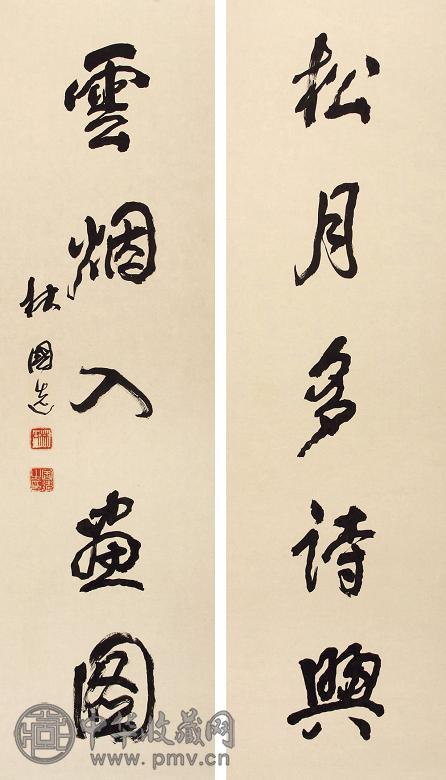 松月多诗興
雲烟入畫图
林國
中华收藏网
www.pmv.cn